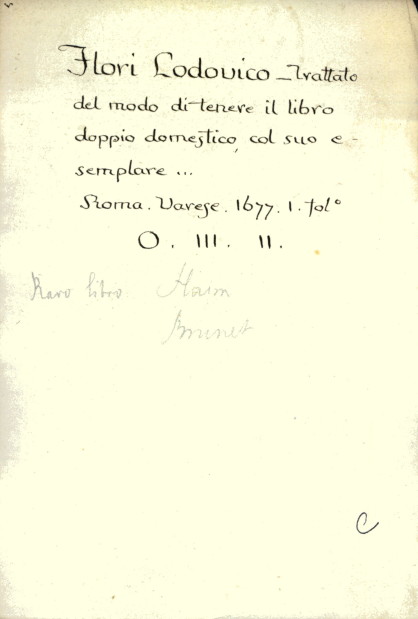 Flori Lodovico - Trattato
del modo di tenere il libro
doppio domestico, col suo e-
semplare ...
Roma. Varese. 1677. 1. fol°
O. III. II.
Raro libro Haim
Brunet
C